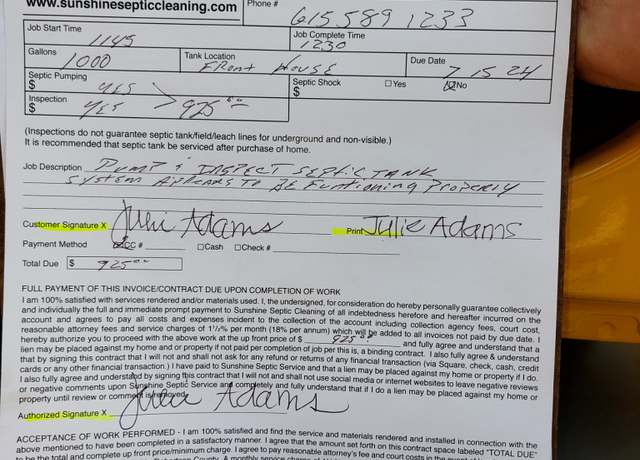 www.sunshinesepticcleaning.com
Phone #
615 589 1233
Job Start Time
1145
Job Complete Time
1230
Gallons
1000
Tank Location
Front House
Due Date
7 15 24
Septic Pumping
$ yes
Septic Shock
$
☐Yes ☒No
Inspection
$ yes
925.00
(Inspections do not guarantee septic tank/field/leach lines for underground and non-visible.)
It is recommended that septic tank be serviced after purchase of home.
Job Description Pump & Inspect Septic Tank
System Appears To Be Funtioning Properly
Customer Signature X Juli Adams Print Julie Adams
Payment Method ☒CC # ☐Cash ☐Check #
Total Due $ 925.00
FULL PAYMENT OF THIS INVOICE/CONTRACT DUE UPON COMPLETION OF WORK
I am 100% satisfied with services rendered and/or materials used. I, the undersigned, for consideration do hereby personally guarantee collectively
and individually the full and immediate prompt payment to Sunshine Septic Cleaning of all indebtedness heretofore and hereafter incurred on the
account and agrees to pay all costs and expenses incident to the collection of the account including collection agency fees, court cost,
reasonable attorney fees and service charges of 1½% per month (18% per annum) which will be added to all invoices not paid by due date. I
hereby authorize you to proceed with the above work at the up front price of $ 925.00 and fully agree and understand that a
lien may be placed against my home and or property if not paid per completion of job per this is, a binding contract. I also fully agree & understand
that by signing this contract that I will not and shall not ask for any refund or returns of any financial transaction (via Square, check, cash, credit
cards or any other financial transaction.) I have paid to Sunshine Septic Service and that a lien may be placed against my home or property if I do.
I also fully agree and understand by signing this contract that I will not and shall not use social media or internet websites to leave negative reviews
or negative comments upon Sunshine Septic Service and completely and fully understand that if I do a lien may be placed against my home or
property until review or comment is removed.
Authorized Signature X Julie Adams
ACCEPTANCE OF WORK PERFORMED - I am 100% satisfied and find the service and materials rendered and installed in connection with the
above mentioned to have been completed in a satisfactory manner. I agree that the amount set forth on this contract space labeled "TOTAL DUE"
to be the total and complete up front price/minimum charge. I agree to pay reasonable attorney's fee and court costs in the